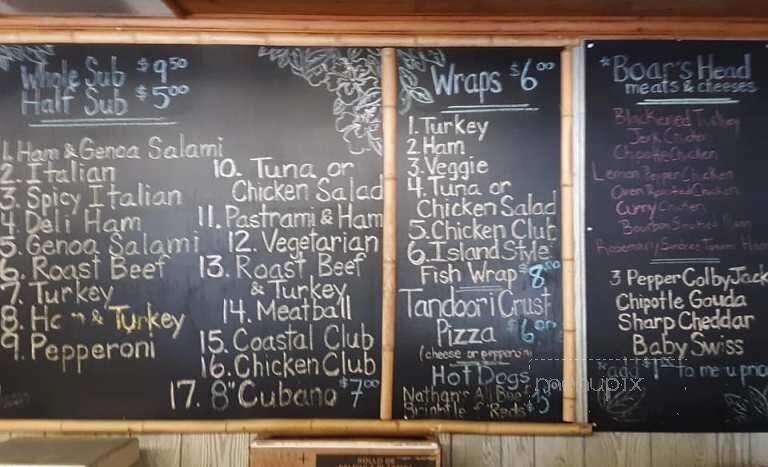 Whole Sub $9.50
Half Sub $5.00
1. Ham & Genoa Salami
2. Italian
3. Spicy Italian
4. Deli Ham
5. Genoa Salami
6. Roast Beef
7. Turkey
8. & Turkey
9. Pepperoni
10. Tuna or
Chicken Salad
11. Pastrami & Ham
12. Vegetarian
13. Roast Beef
& Turkey
14. Meatball
15. Coastal Club
16. Chicken Club
17. 8" Cubano $7.00
Wraps $6.00
1. Turkey
2 Ham
3. Veggie
4. Tuna or
Chicken Salad
5. Chicken Club
6. Island Style
Fish Wrap $8.00
Tandoori Crust
Pizza $6.00
(cheese or pepperoni
Hot Dogs
Nathan's All Bee
$
*Boar's Head
meats & cheeses
Blackened Turkey
Jerk
Chipotle Chicken
Lemon Pepper Chicken
Oven Roasted Chicken
Curry Chicken
Bourbon Smoked
Rosemary
3 Pepper Colby Jack
Chipotle Gouda
Sharp Cheddar
Baby Swiss
*add $1.00 to me u pric
menupix